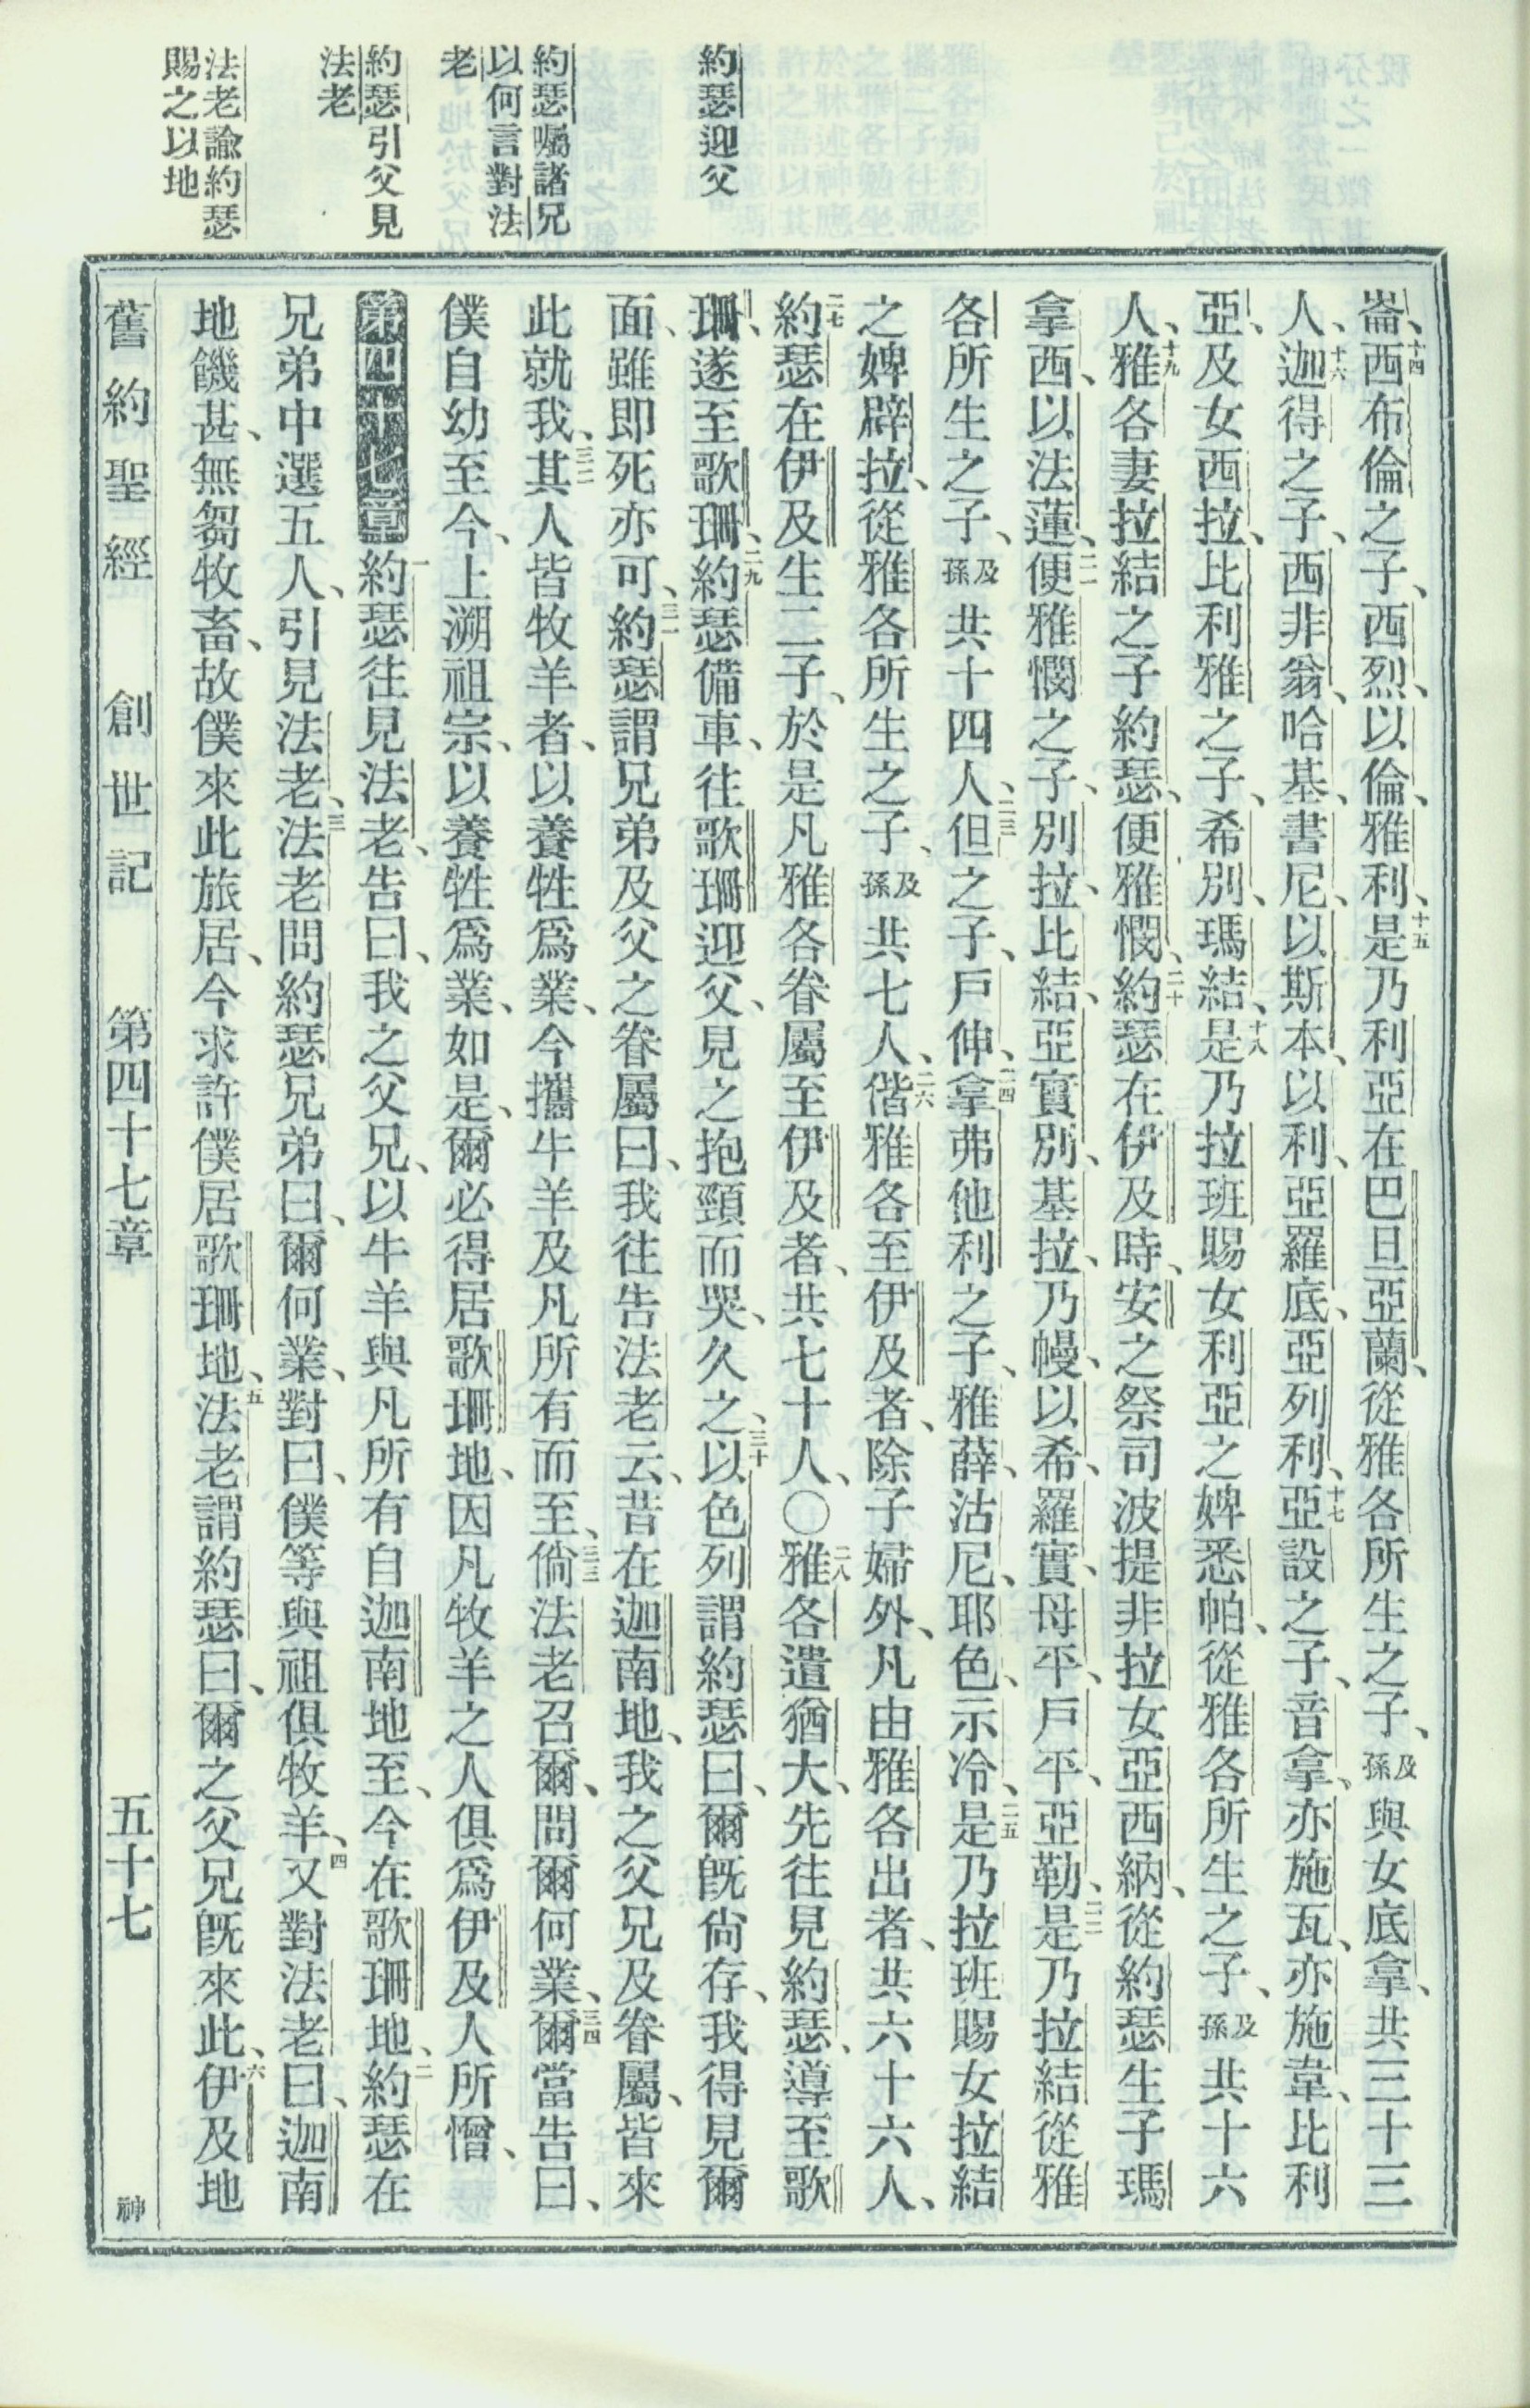 約瑟迎父
約瑟囑諸兄
以何言對法
老
約瑟引父見
法老
法老諭約瑟
賜之以地
崙、十四西布倫之子、西烈、以倫、雅利、十五是乃利亞在巴旦亞蘭、從雅各所生之子、及孫與女底拿、共三十三
人、十六迦得之子、西非翁、哈基、書尼、以斯本、以利、亞羅底、亞列利、十七亞設之子、音拿、亦施瓦、亦施韋、比利
亞、及女西拉、比利雅之子、希別、瑪結、十八是乃拉班賜女利亞之婢悉帕、從雅各所生之子、及孫共十六
人、十九雅各妻拉結之子約瑟、便雅憫、二十約瑟在伊及時、安之祭司波提非拉女亞西納、從約瑟生子瑪
拿西、以法蓮、二一便雅憫之子、別拉、比結、亞實別、基拉、乃幔、以希、羅實、母平、戶平、亞勒、二二是乃拉結從雅
各所生之子、及孫共十四人、二三但之子、戶伸、二四拿弗他利之子、雅薛、沽尼、耶色、示冷、二五是乃拉班賜女拉結
之婢辟拉、從雅各所生之子、及孫共七人、二六偕雅各至伊及者、除子婦外、凡由雅各出者、共六十六人、
二七約瑟在伊及生二子、於是凡雅各眷屬至伊及者、共七十人、〇二八雅各遣猶大、先往見約瑟、導至歌
珊、遂至歌珊、二九約瑟備車、往歌珊迎父、見之抱頸而哭、久之、三十以色列謂約瑟曰、爾旣尙存、我得見爾
面、雖即死亦可、三一約瑟謂兄弟及父之眷屬曰、我往吿法老云、昔在迦南地、我之父兄及眷屬、皆來
此就我、三二其人皆牧羊者、以養牲爲業、今攜牛羊及凡所有而至、三三倘法老召爾、問爾何業、三四爾當吿曰、
僕自幼至今、上溯祖宗、以養牲爲業、如是、爾必得居歌珊地、因凡牧羊之人俱爲伊及人所憎、
第四十七章 一約瑟往見法老、吿曰、我之父兄、以牛羊與凡所有自迦南地至、今在歌珊地、二約瑟在
兄弟中選五人、引見法老、三法老問約瑟兄弟曰、爾何業、對曰、僕等與祖俱牧羊、四又對法老曰、迦南
地饑甚、無芻牧畜、故僕來此旅居、今求許僕居歌珊地、五法老謂約瑟曰、爾之父兄旣來此、六伊及地
舊約聖經 創世記 第四十七章 五十七 神